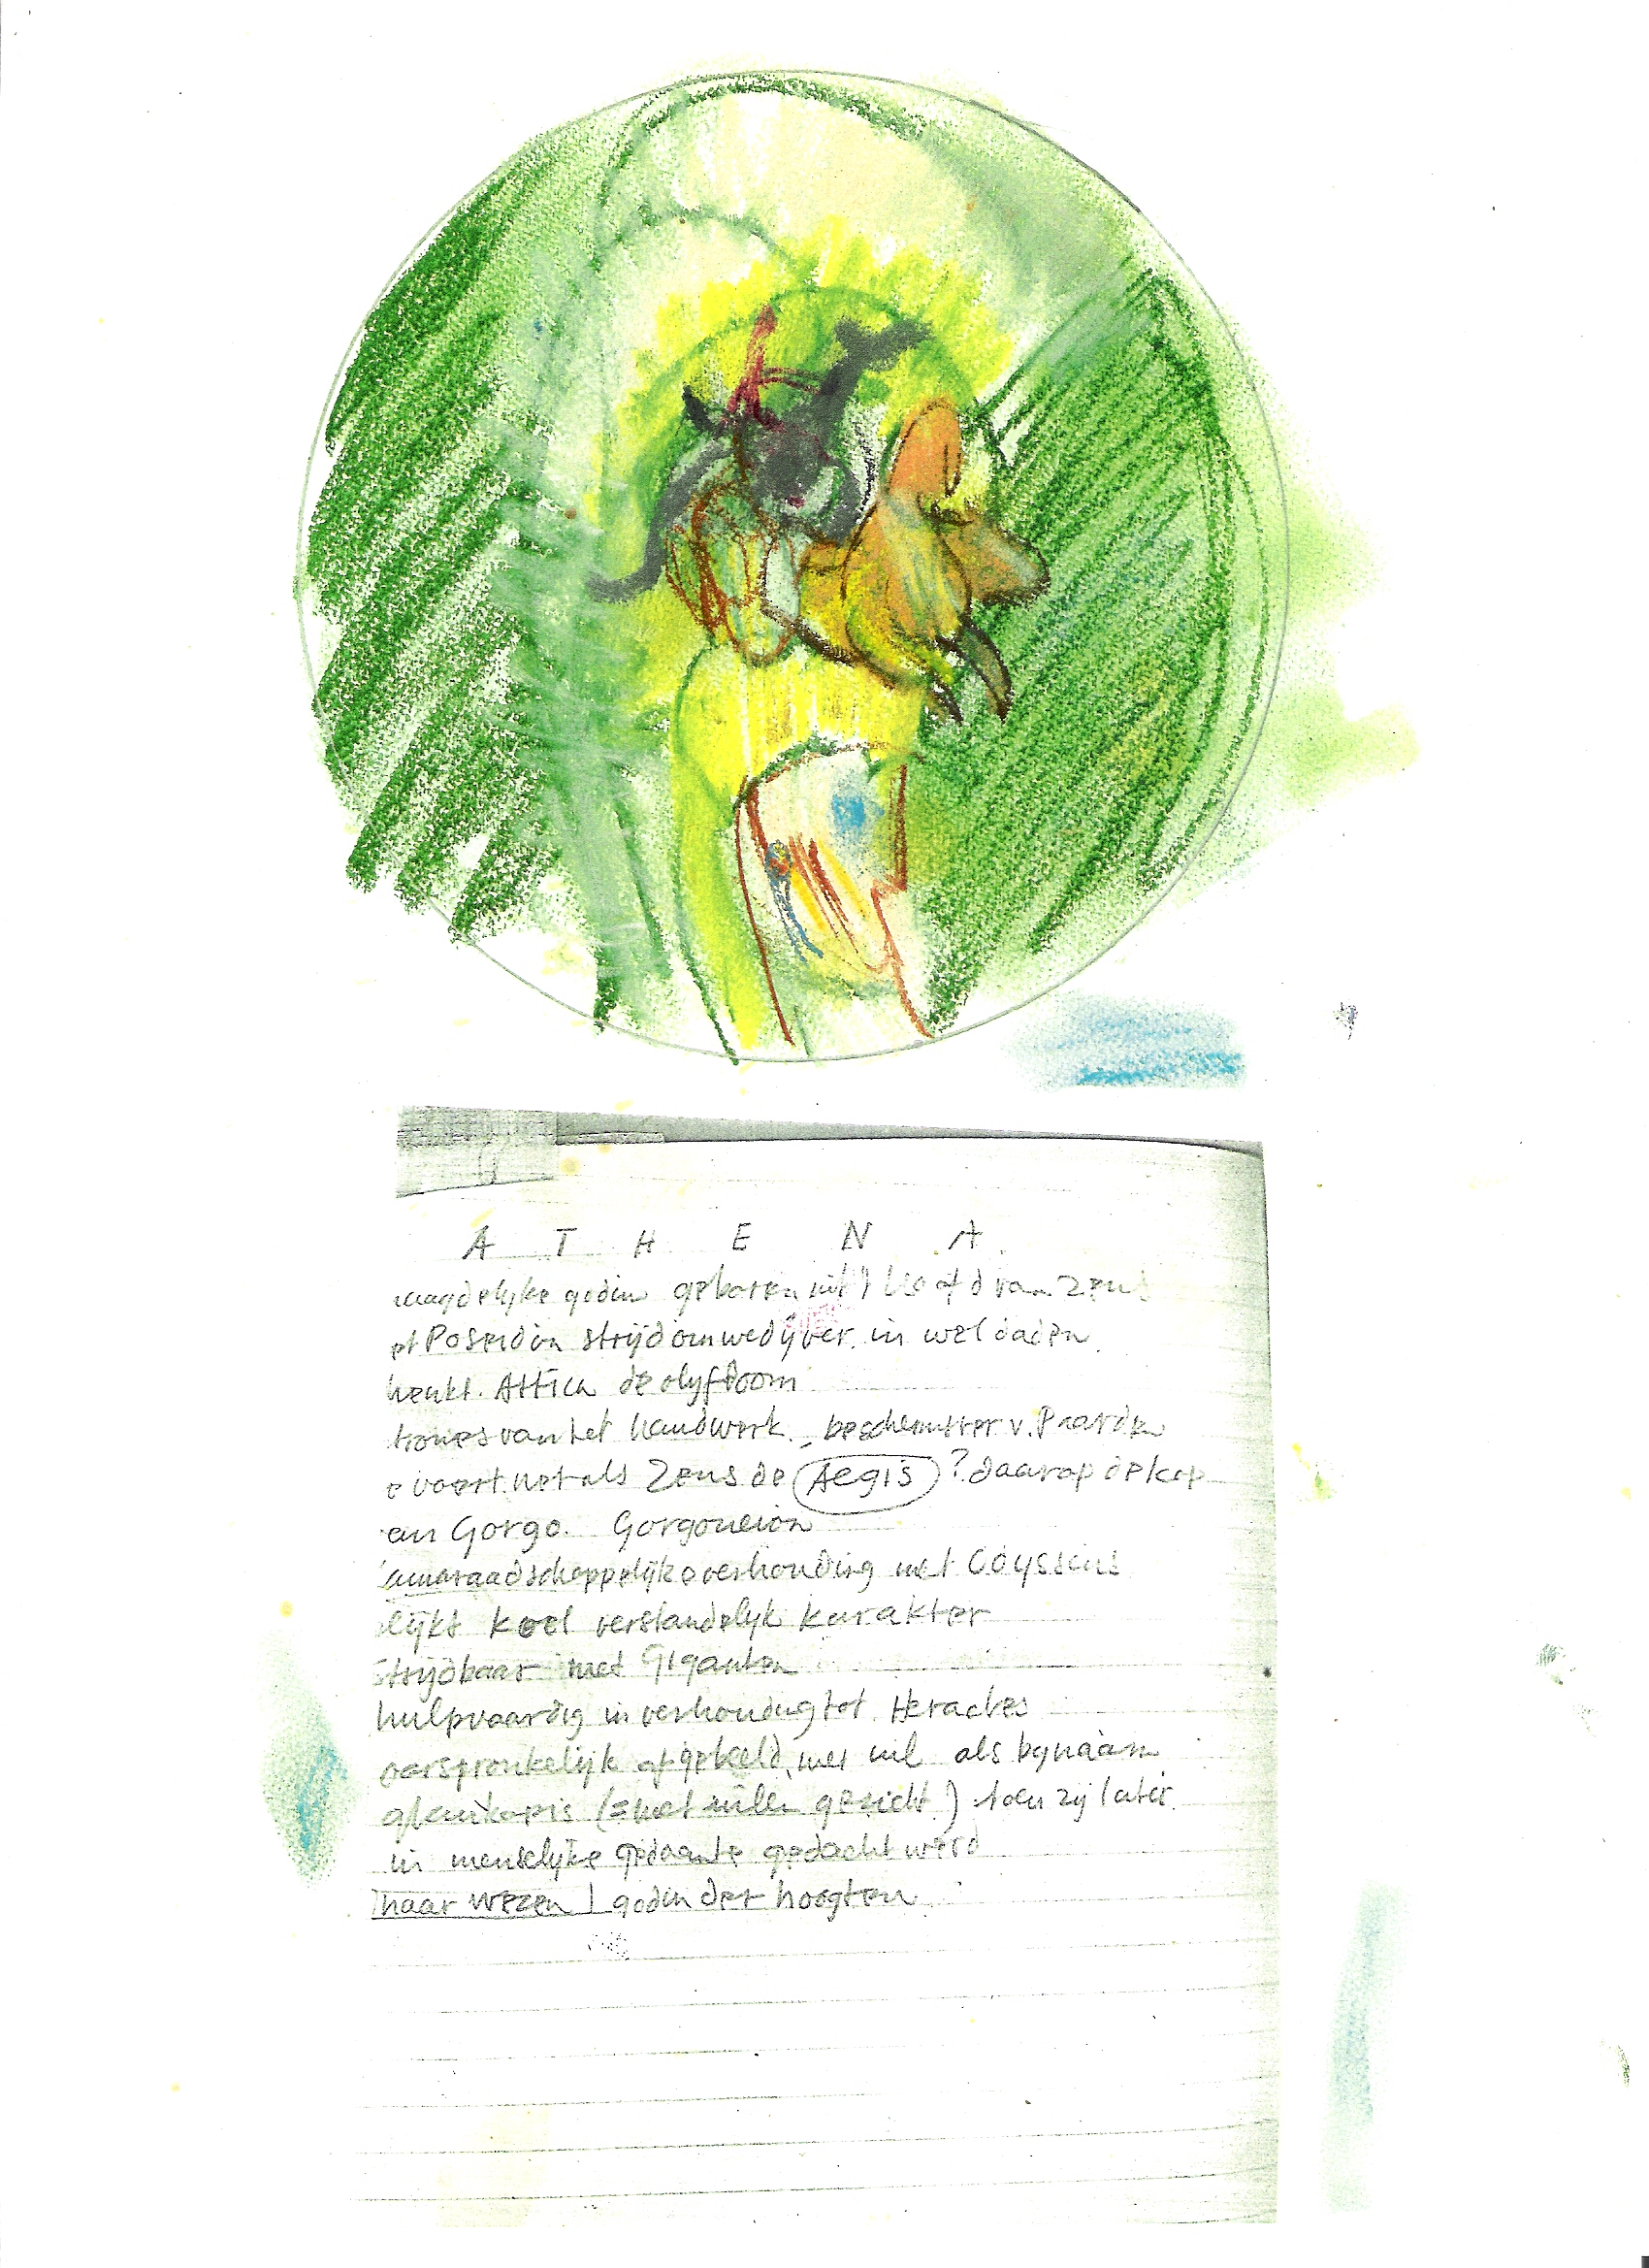 A T H E N A
maagdelijke godin geboren uit 't hoofd van Zeus
et Poseidon strijd om wedijver in weldaden
henkt Attica de olyfboom
trones van het handwerk beschermster v. Paarden
e voert net als Zeus de Aegis ? daarop de kop
an Gorgo. Gorgoneion
amaraadschappelijke verhouding met Odysseus
lijkt koel verstandelyk karakter
strijdbaar met Giganten
hulpvaardig in verhouding tot Heracles
oorspronkelijk afgebeeld met uil als bynaam
glaukopis (= met uilen gezicht) toen zij later
in menselijke gedaante gedacht werd
haar wezen godin der hoogten